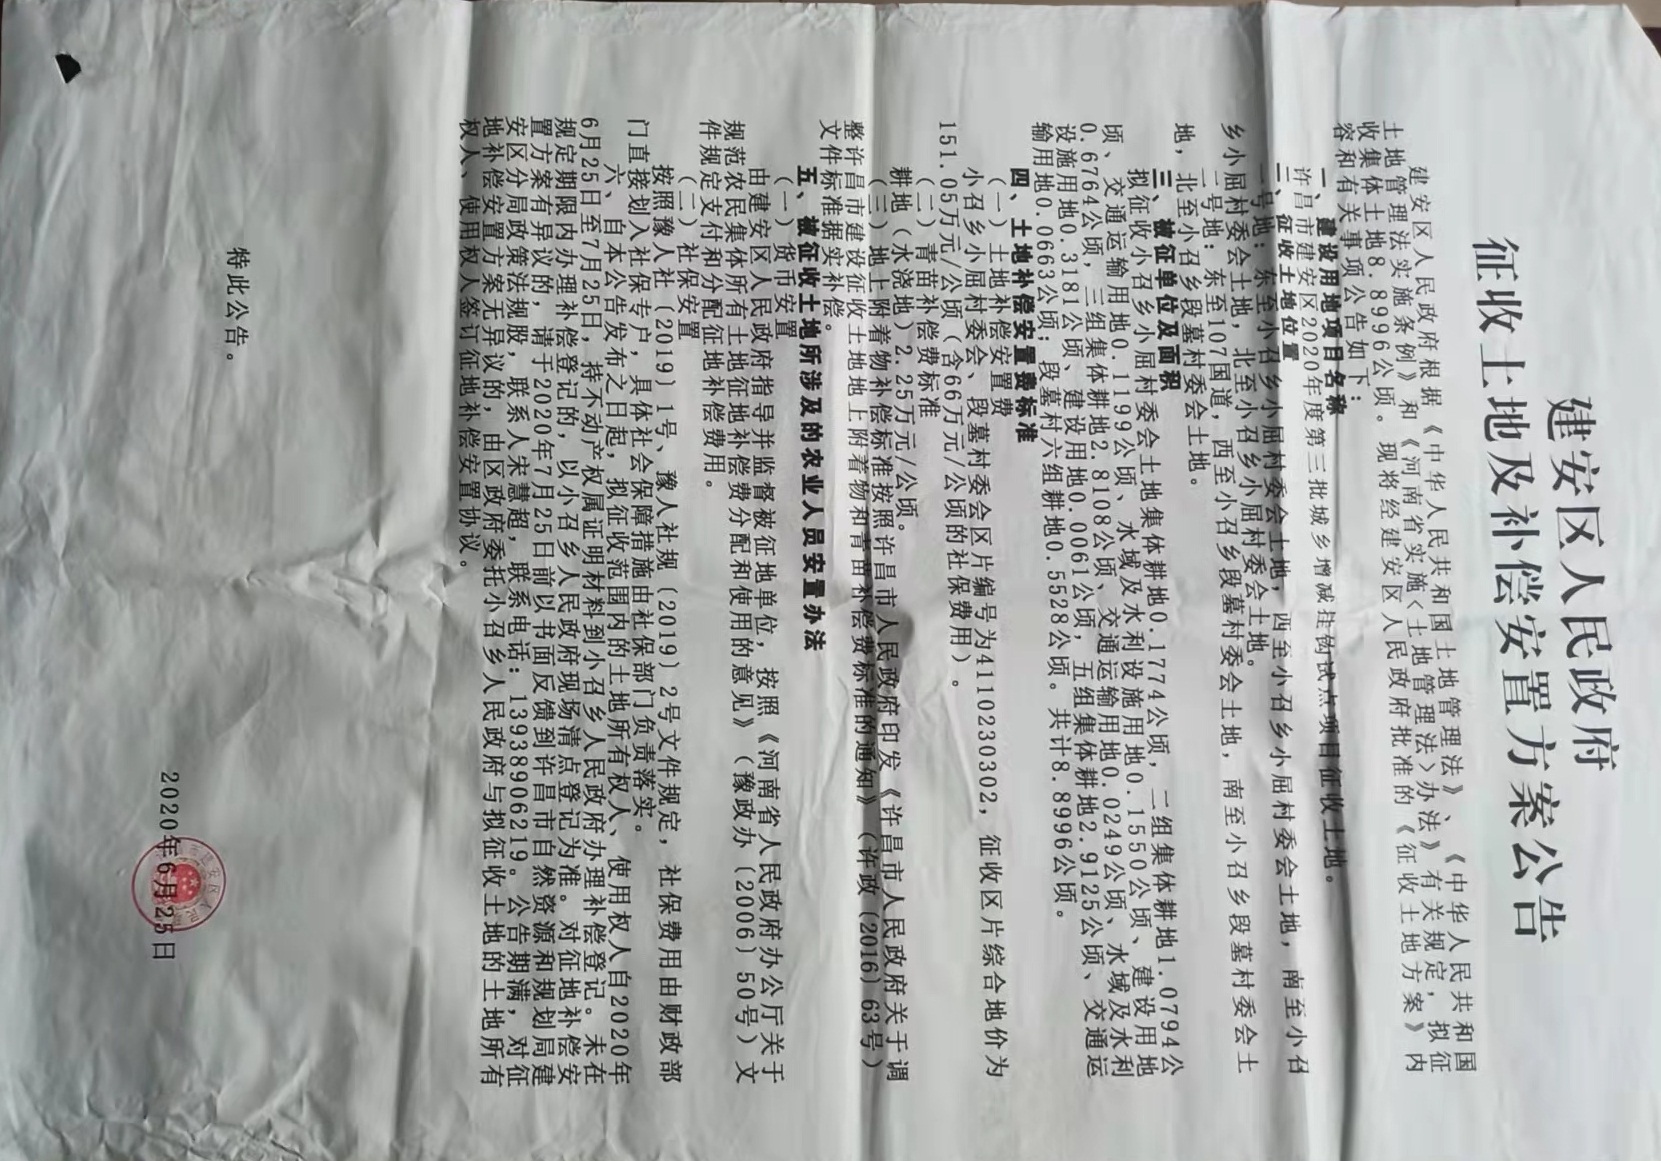 建安区人民政府
征收土地及补偿安置方案公告
建安区人民政府根据《中华人民共和国土地管理法》、《中华人民共和国
土地管理法实施条例》和《河南省实施〈土地管理法〉办法》有关规定，拟征
收集体土地8.8996公顷。现将经建安区人民政府批准的《征收土地方案》内
容和有关事项公告如下：
一、建设用地项目名称
许昌市建安区2020年度第三批城乡增减挂钩试点项目征收土地。
二、征收土地位置
一号地：东至小召乡小屈村委会土地，西至小召乡小屈村委会土地，南至小召
乡小屈村委会土地，北至小召乡小屈村委会土地。
二号地：东至107国道，西至小召乡段墓村委会土地，南至小召乡段墓村委会土
地，北至小召乡段墓村委会土地。
三、被征单位及面积
拟征收小召乡小屈村委会土地集体耕地0.1774公顷，二组集体耕地1.0794公
顷、交通运输用地0.1199公顷、水域及水利设施用地0.1550公顷、建设用地
0.6764公顷，三组集体耕地2.8108公顷、交通运输用地0.0249公顷、水域及水利
设施用地0.3181公顷、建设用地0.0061公顷，五组集体耕地2.9125公顷、交通运
输用地0.0663公顷；段墓村六组耕地0.5528公顷。共计8.8996公顷。
四、土地补偿安置费标准
（一）土地补偿安置费
小召乡小屈村委会、段墓村委会区片编号为41102330302，征收区片综合地价为
151.05万元/公顷（含66万元/公顷的社保费用）。
（二）青苗补偿费标准
耕地（水浇地）2.25万元/公顷。
（三）地上附着物补偿标准按照许昌市人民政府印发《许昌市人民政府关于调
整许昌市建设征收土地地上附着物和青苗补偿费标准的通知》（许政（2016）63号）
文件标准据实补偿。
五、被征收土地所涉及的农业人员安置办法
（一）货币安置
由建安区人民政府指导并监督被征地单位，按照《河南省人民政府办公厅关于
规范农民集体所有土地征地补偿费分配和使用的意见》（豫政办（2006）50号）文
件规定支付和分配征地补偿费用。
（二）社保安置
按照豫人社（2019）1号、豫人社规（2019）2号文件规定，社保费用由财政部
门直接划入社保专户，具体社会保障措施由社保部门负责落实。
六、自本公告发布之日起，拟征收范围内的土地所有权人、使用权人自2020年
6月25日至7月25日，持不动产权属证明材料到小召乡人民政府办理补偿登记。未在
规定期限内办理补偿登记的，以小召乡人民政府现场清点登记为准。对征地补偿安
置方案有异议的，请于2020年7月25日前以书面反馈到许昌市自然资源和规划局建
安区分局政策法规股，联系人宋慧超，联系电话：13938906219。公告期满，对征
地补偿安置方案无异议的，由区政府委托小召乡人民政府与拟征收土地的土地所有
权人、使用权人签订征地补偿安置协议。
特此公告。
2020年6月25日